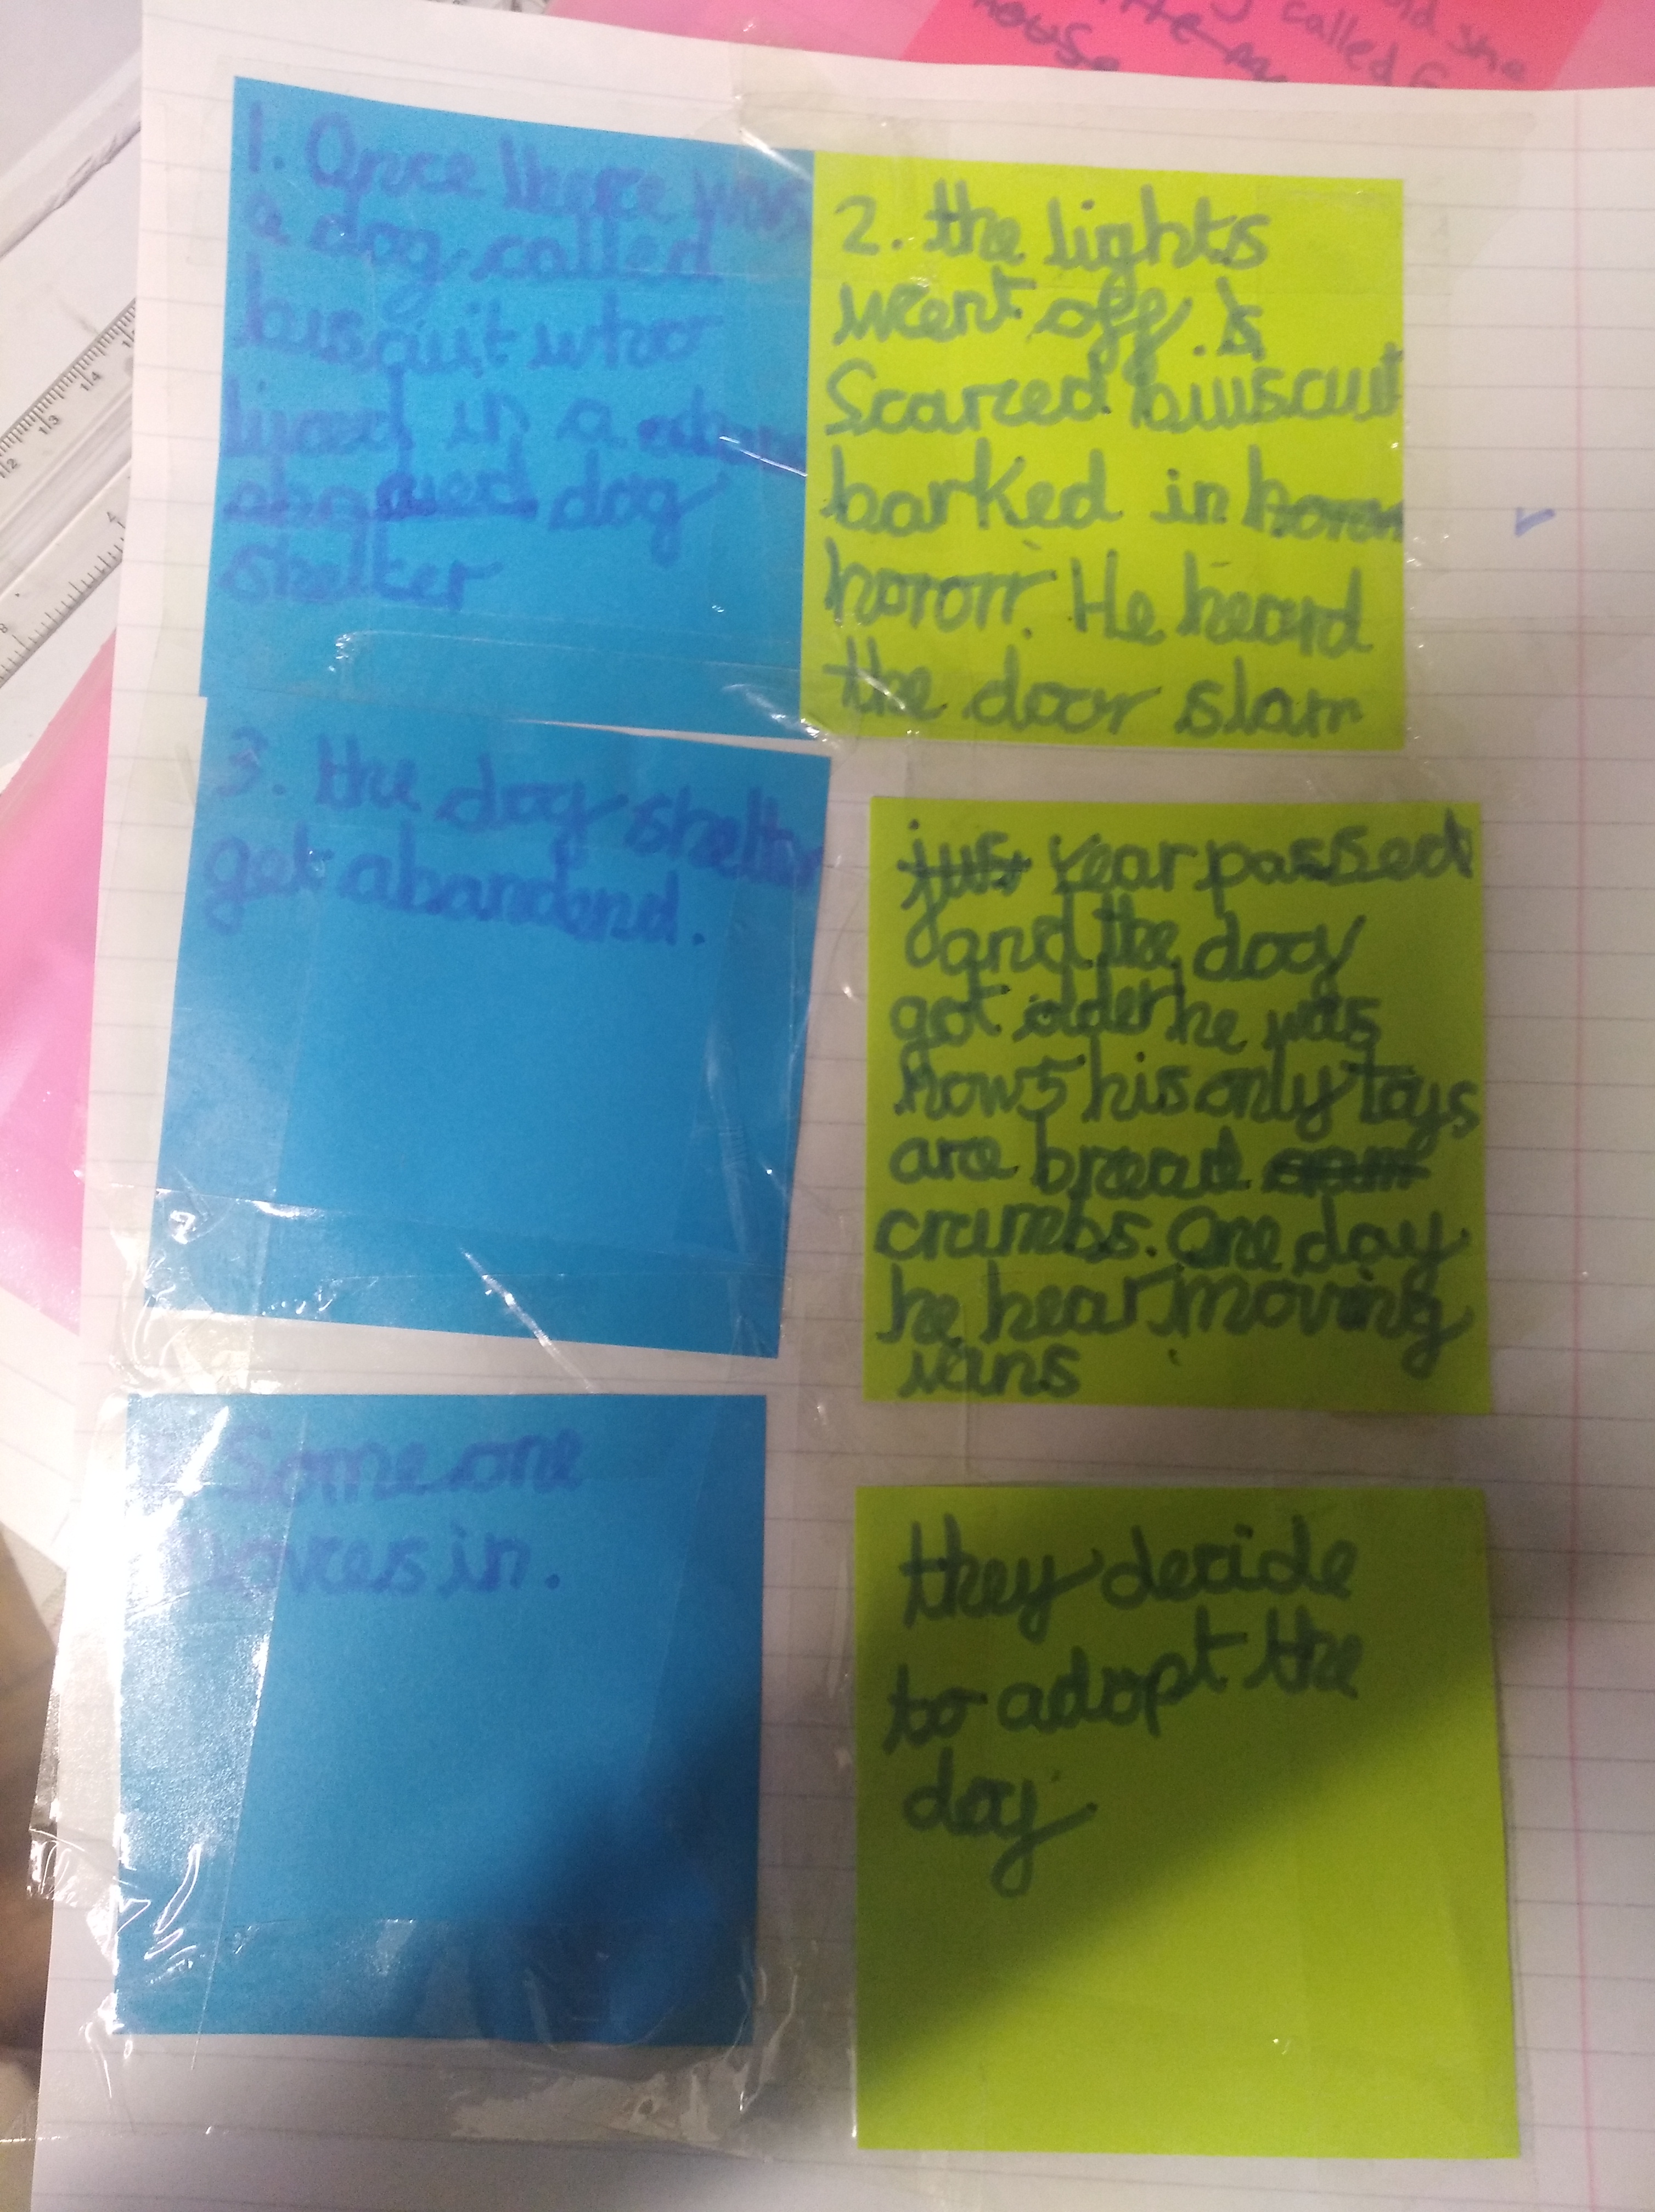 1. Once there was
a dog called
buscuit who
lived in a
dog
shelter
2. the lights
went off. s
Scarced biuscuit
barked in horror
hororr. He heard
the door slam
3. the dog shelter
get abandend.
just Year passed
and the dog
got older he was
now 5 his only toys
are bread
crumbs. One day
he hear moving
vans
Someone
Moves in.
they decide
to adopt the
dog.
called
house